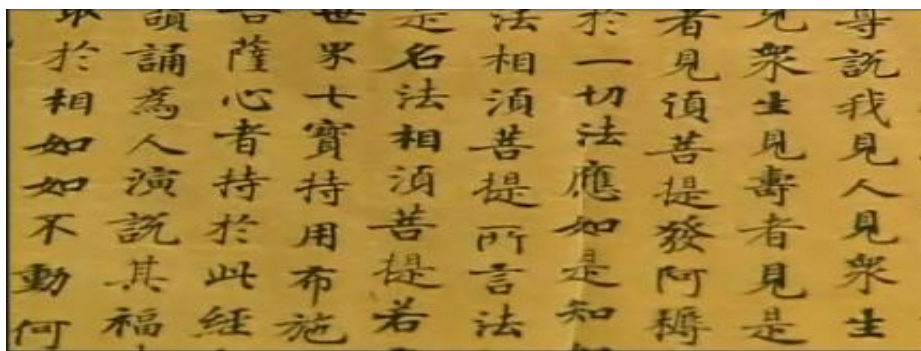 尊説我見人見衆生
見衆生見壽者見是
者見須菩提發阿耨
於一切法應如是知
法相須菩提所言法
是名法相須菩提若
世界七寶持用布施
菩薩心者持於此經
讀誦為人演説其福
取於相如如不動何